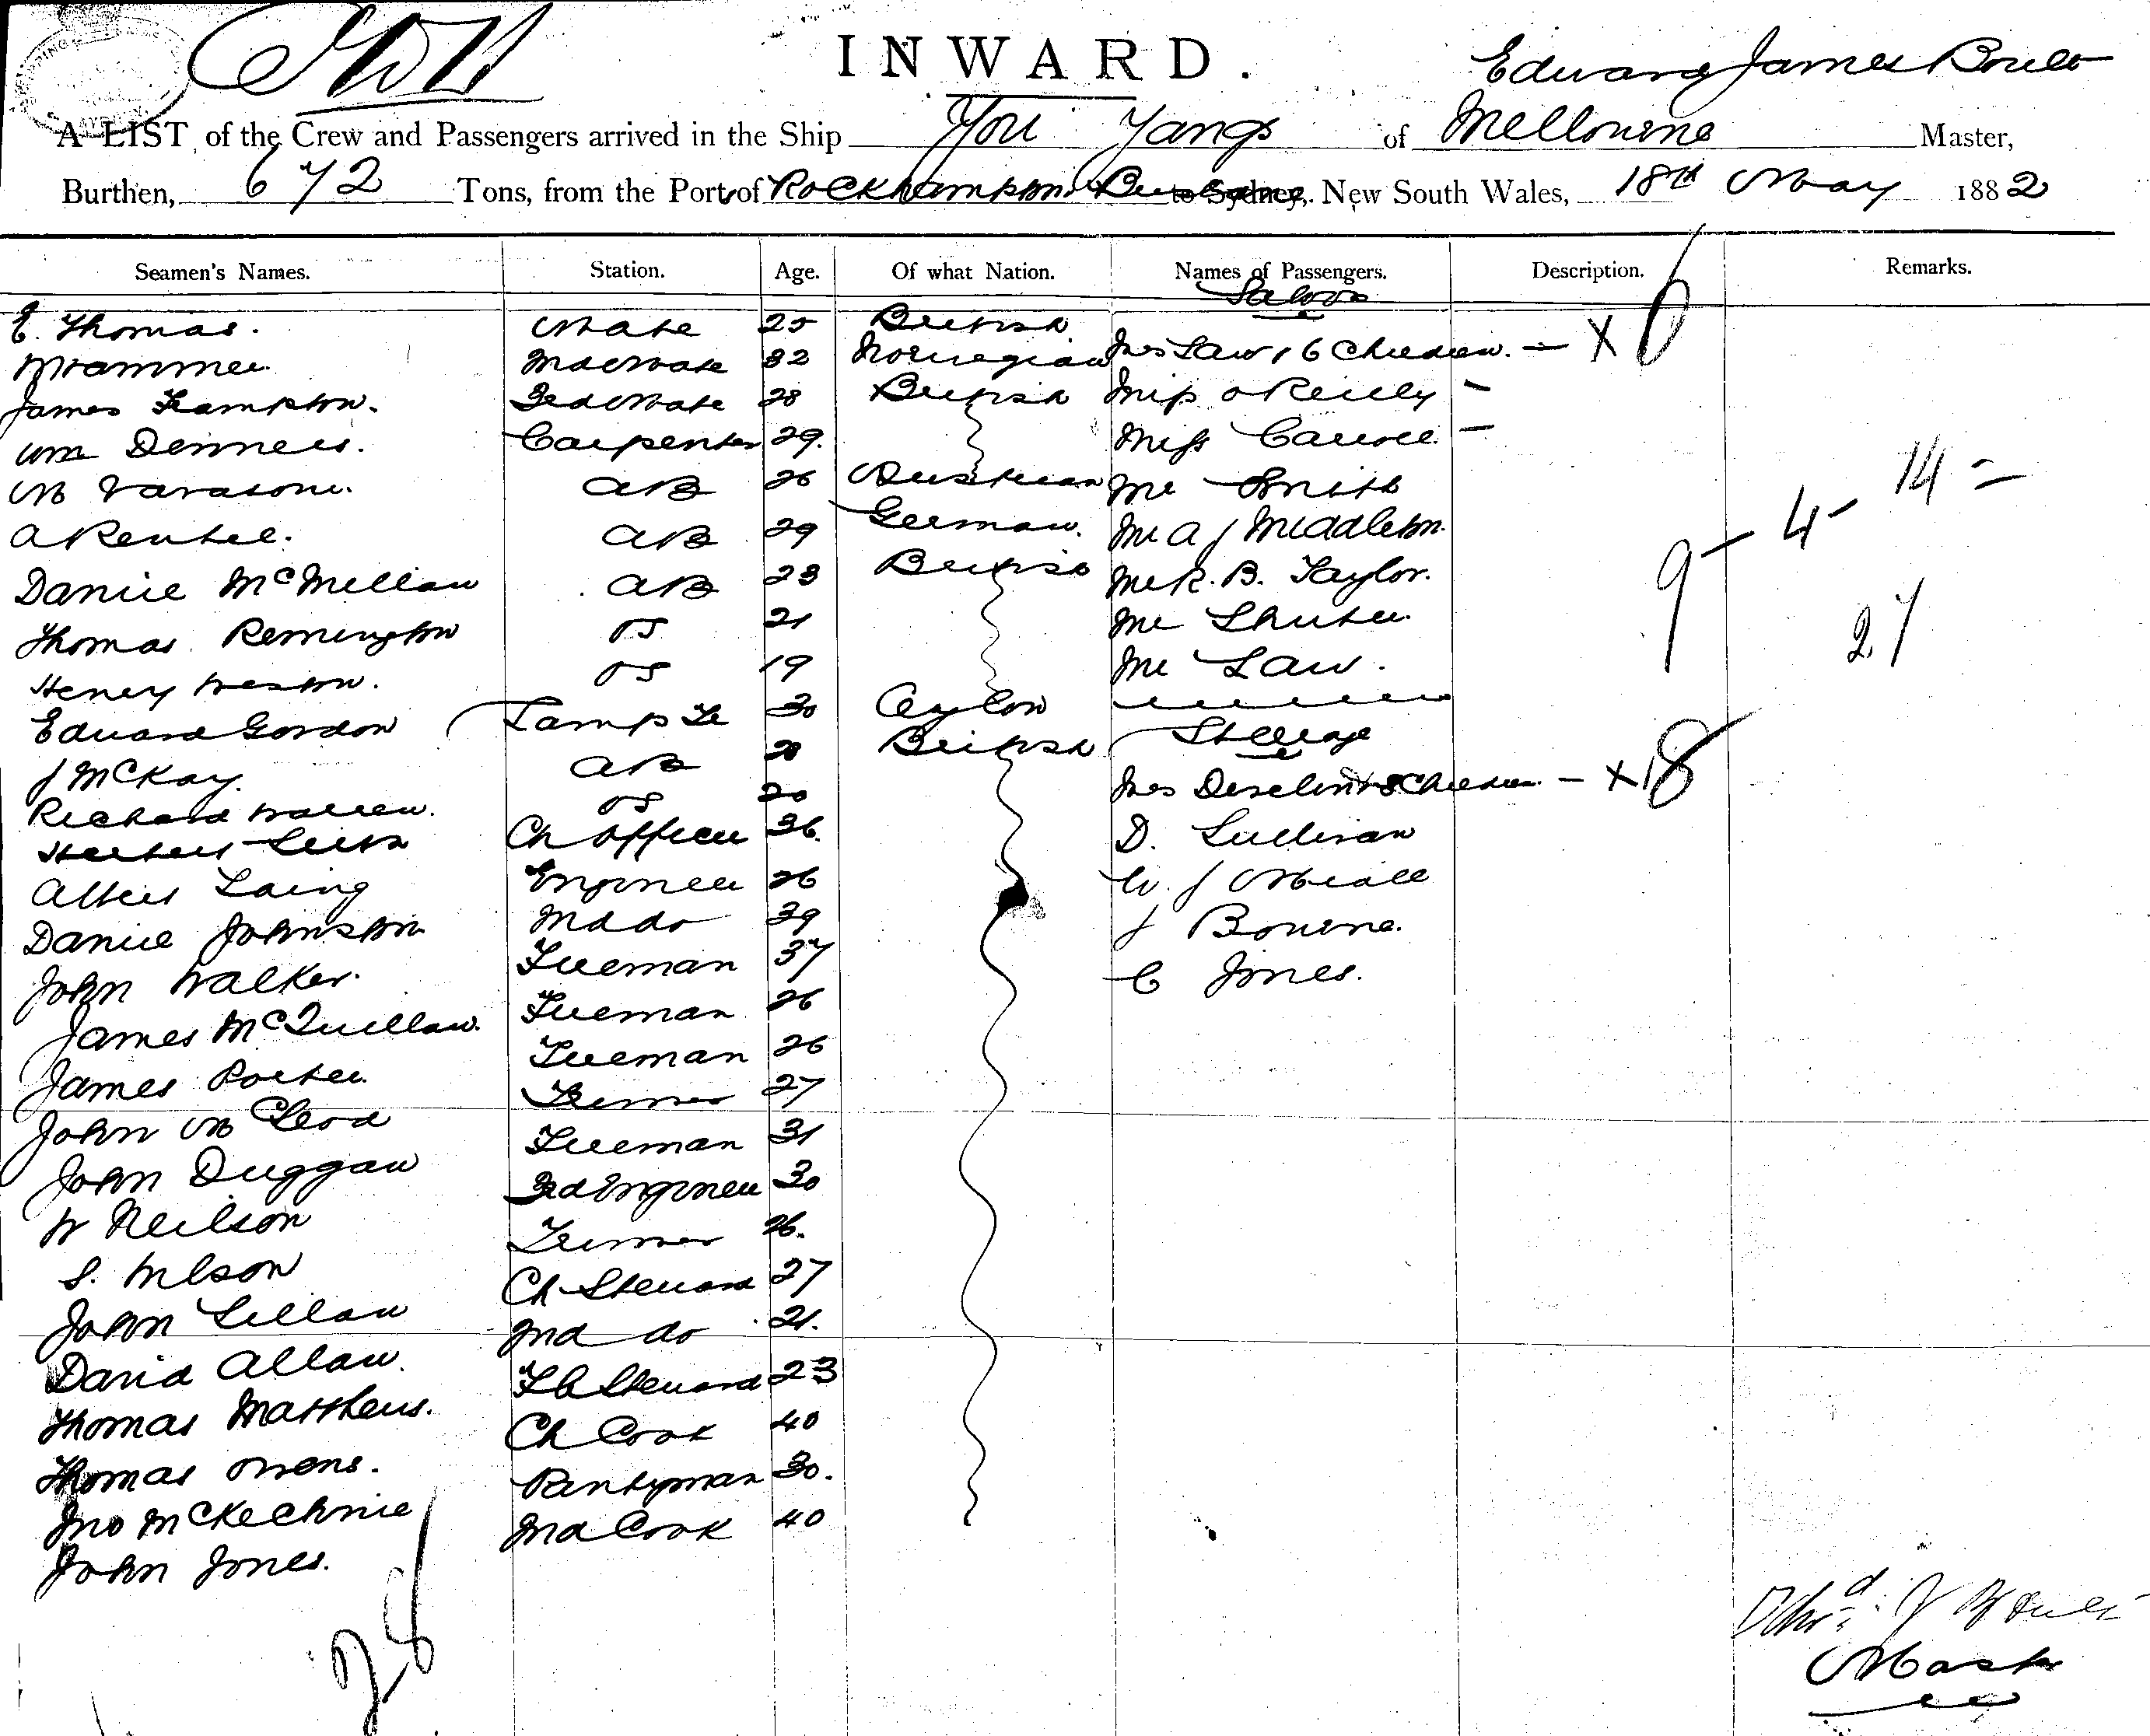 INWARD.
Edward James Boult
A LIST of the Crew and Passengers arrived in the Ship You Yangs of Melbourne Master,
Burthen, 672 Tons, from the Port of Rockhampton Brisbane to Sydney, New South Wales, 18th May 1882
Seamen's Names. Station. Age. Of what Nation. Names of Passengers. Description. Remarks.
Saloon
E. Thomas. Mate 25 British
2nd Mate 32 Norwegian Mrs Law & 6 Children. — X 6
James Hampton. 3rd Mate 28 British Miss O Reilly —
Wm 29. Carpenter Miss Carroll —
M AB 26 Austrian Mr Smith
A AB 29 German. Mr A J Middleton.
Daniel McMillan AB 23 British Mr R. B. Taylor.
Thomas Remington OS 21 Mr
Henry Weston. OS 19 Mr Law.
Edward Gordon Lamp Tr 30 Ceylon
J McKay. AB 28 British Steerage
Richard Warren. OS 20 Mrs & 8 Children — X 18
Herbert Ch Officer 36. D. Sullivan
Albert Laing Engineer 26 W. J
Daniel Johnston 2nd do 39 J Bourne.
John Walker. Fireman 37 C Jones.
James McQuillan. Fireman 26
James Porter Fireman 26
John McLeod Trimmer 27
John Duggan Fireman 31
W Neilson 3rd Engineer 30
S. Wilson Trimmer 26.
John Lillan Ch Steward 27
David Allan. 2nd do 21.
Thomas Matthews. F C Steward 23
Thomas Owens. Ch Cook 40
Jno McKechnie Pantryman 30.
John Jones. 2nd Cook 40
28
9 — 4 — 14 =
27